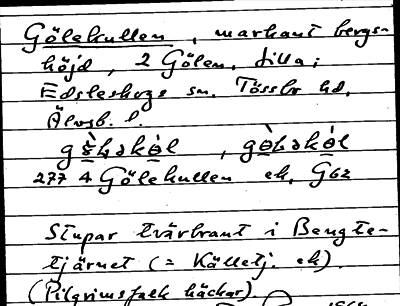 Gölekullen, markant bergs-
höjd, 2 Gölen, lilla;
Edsleskogs sn. Tössbo hd.
Älvsb. l.
277 4 Gölekullen ek. G62
Stupar tvärbrant i Bengte-
tjärnet (= Källetj. ek).
(Pilgrimsfalk häckar)